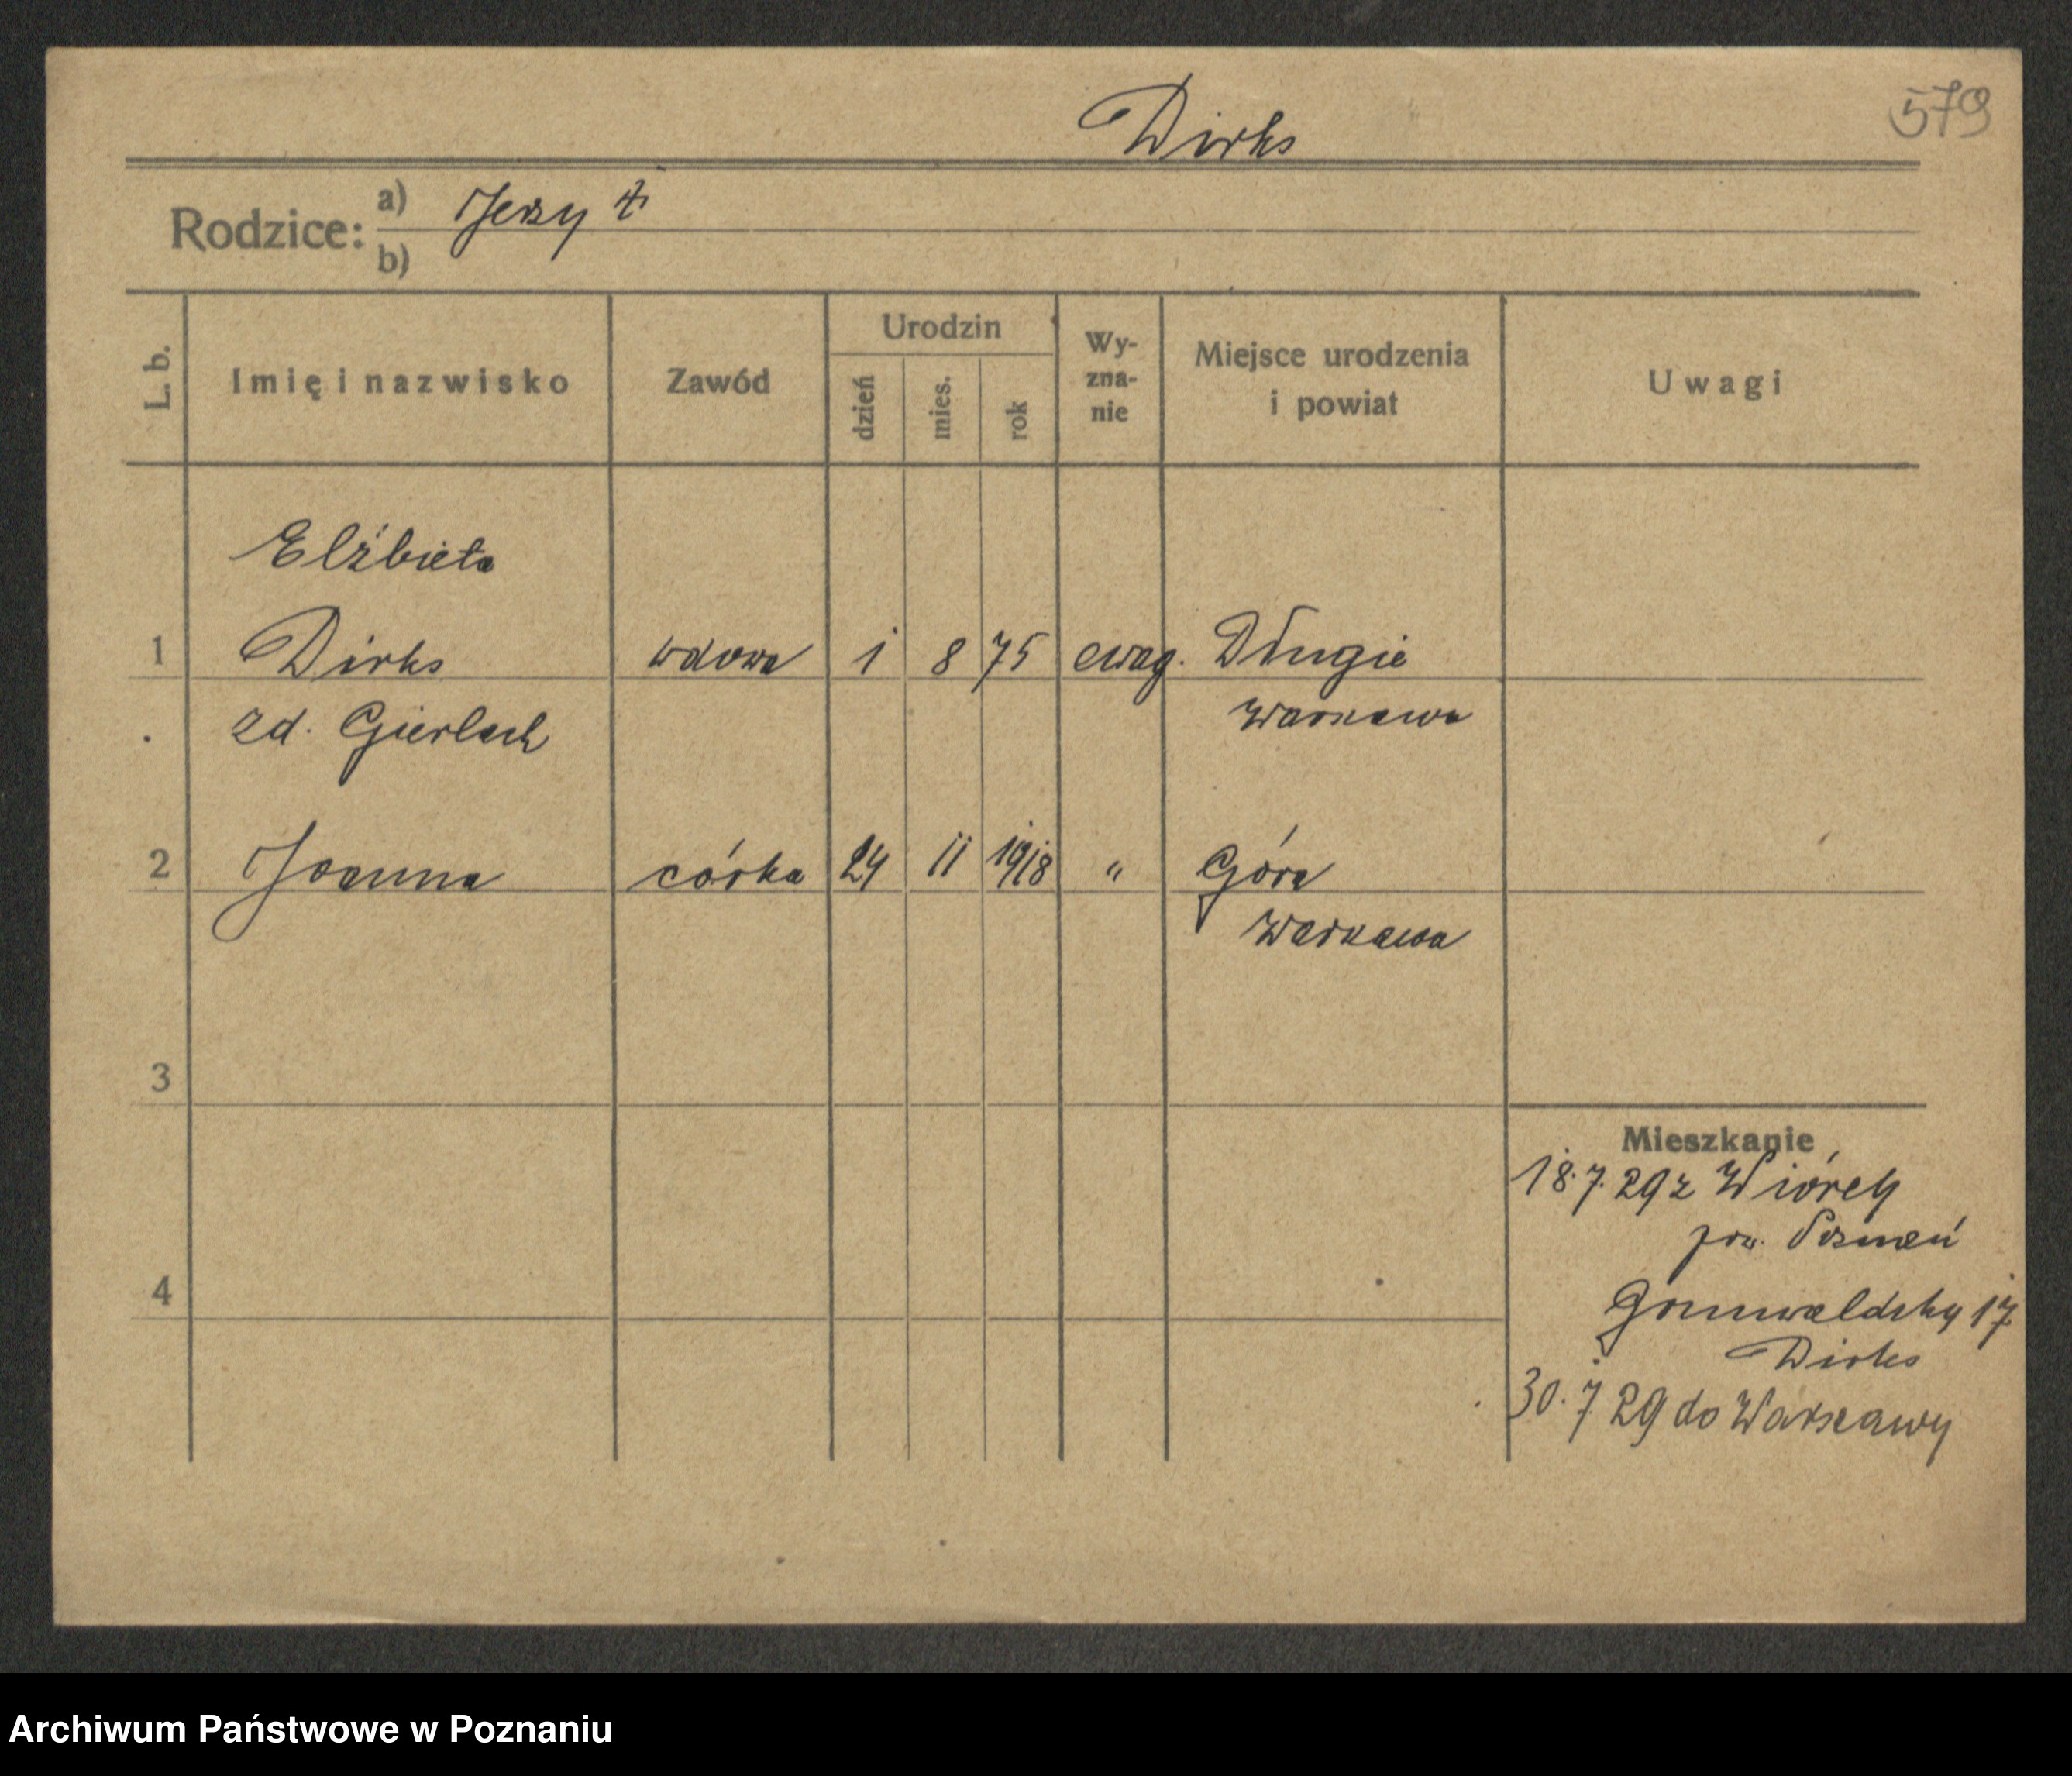 579
Dirks
Rodzice: a) Jerzy
b)
L. b. Imię i nazwisko Zawód Urodzin dzień mies. rok Wy-zna-nie Miejsce urodzenia i powiat Uwagi
Elżbieta
1 Dirks wdowa 1 8 75 ewag. Długie
zd. Gierlach Warszawa
2 Joanna córka 24 11 1918 " Góra
Warszawa
3
Mieszkanie
18.7.29 z Wiórek
pow. Poznań
4
Grunwaldzka 17
Dirks
30.7.29 do Warszawy
Archiwum Państwowe w Poznaniu